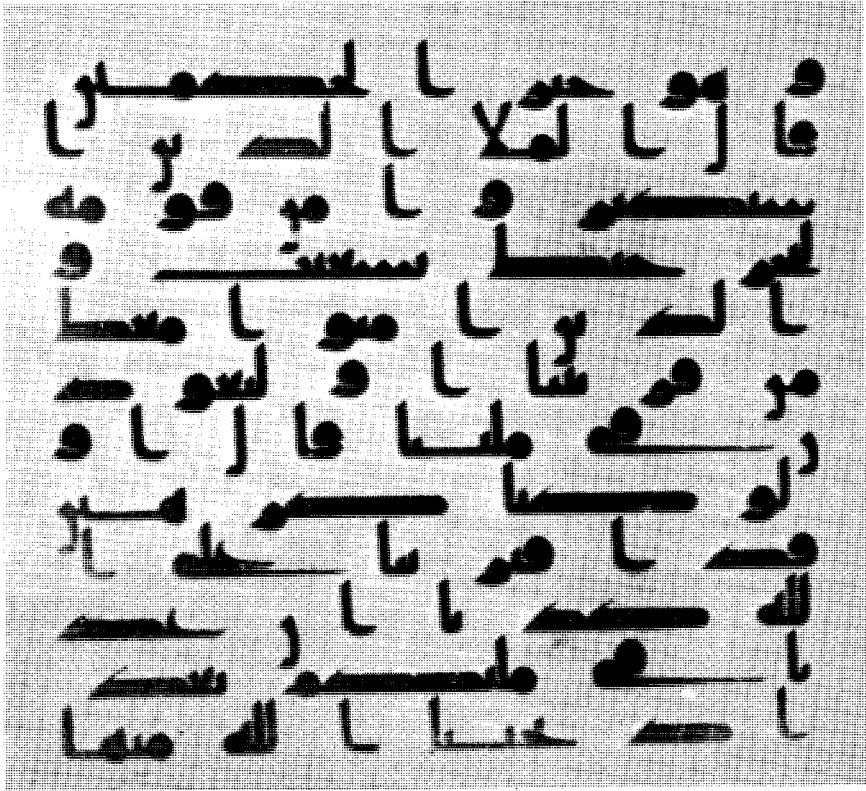 و هو خير ا لحكمين
قا ل ا لملا ا لذ ين ا
ستكبرو ا من قومه
لنخر جنك يشعيب و
ا لذ ين ا منو ا معك
من قر يتنا ا و لتعو د
ن في ملتنا قا ل ا و
لو كنا كر هين
قد ا فتر ينا على ا
لله كذ با ا ن عد
نا في ملتكم بعد
ا ذ نجنا ا لله منها